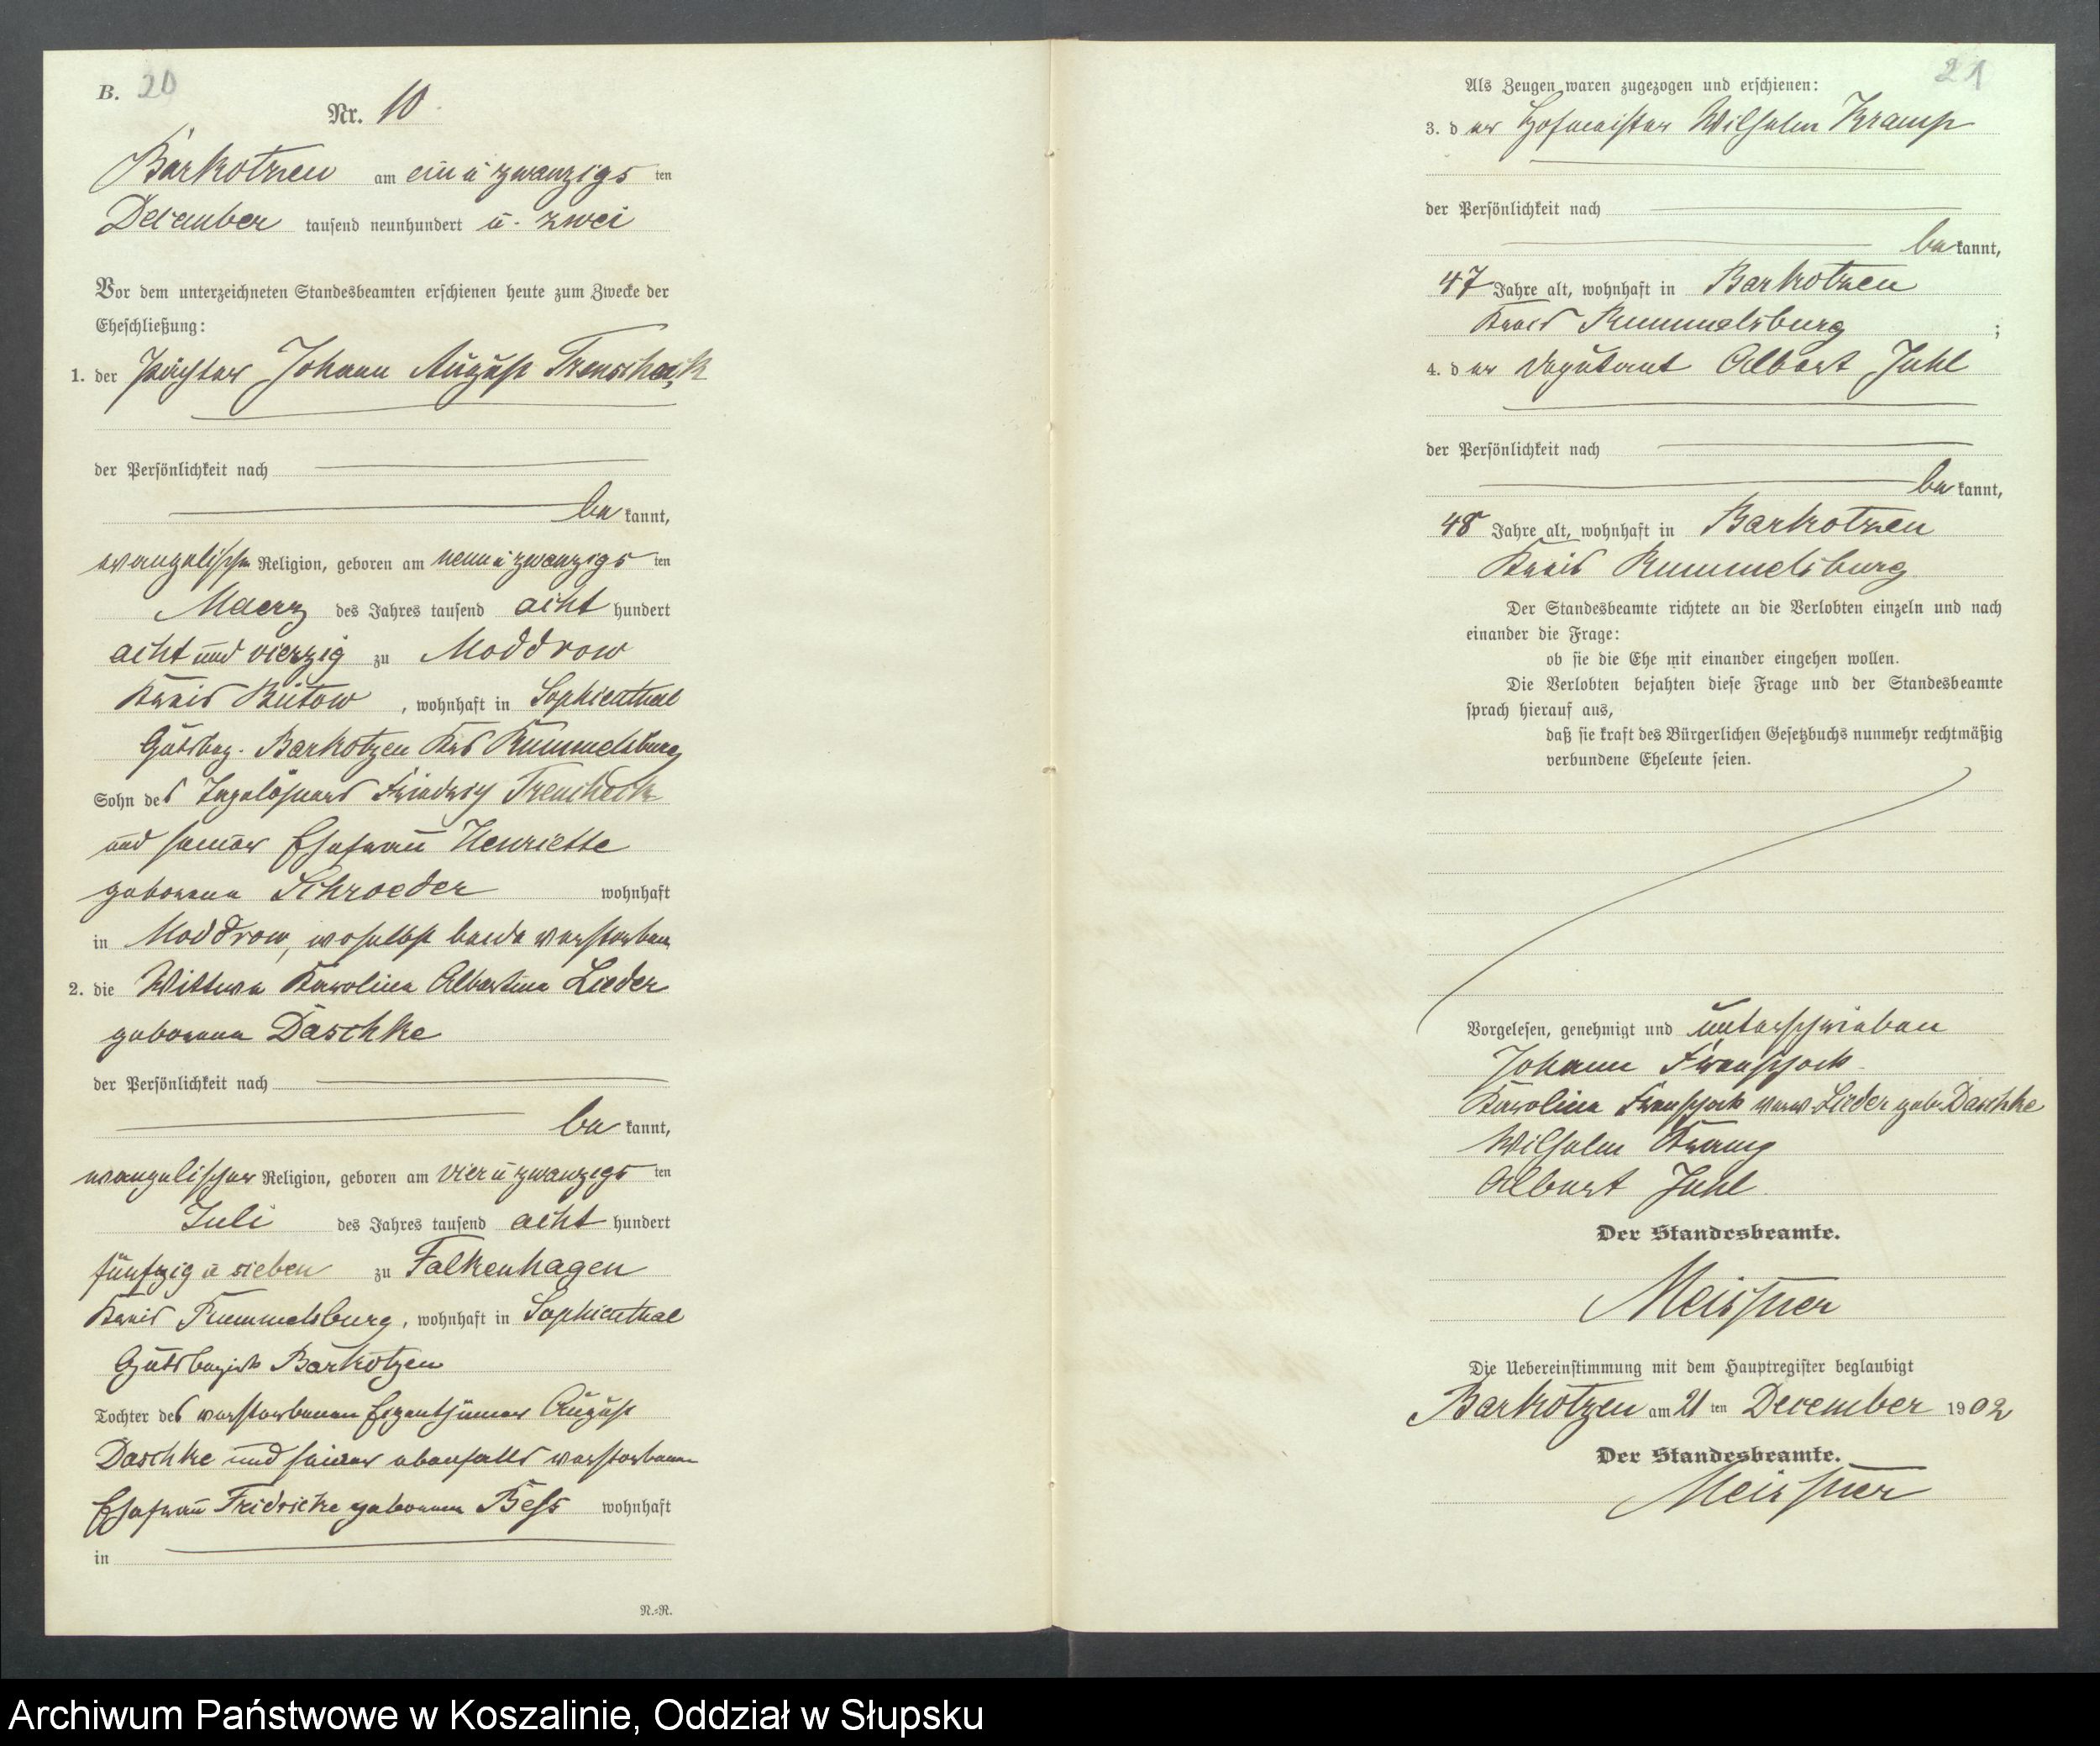 B. 20
Nr. 10
Barkotzen am ein u zwanzigs ten
December tausend neunhundert u. zwei
Vor dem unterzeichneten Standesbeamten erschienen heute zum Zwecke der
Eheschließung:
1. der Pächter Johann August Trenschack
der Persönlichkeit nach
be kannt,
evangelischer Religion, geboren am neun u zwanzigs ten
Maerz des Jahres tausend acht hundert
acht und vierzig zu Moddrow
Kreis Bütow, wohnhaft in Sophienthal
Gutsbez. Barkotzen Krs Rummelsburg
Sohn des Tagelöhners Friedrich Trenscheck
und seiner Ehefrau Henriette
geborene Schroeder wohnhaft
in Moddrow, woselbst beide verstorben
2. die Wittwe Karoline Albertine Lieder
geborene Daschke
der Persönlichkeit nach
be kannt,
evangelischer Religion, geboren am vier u zwanzigs ten
Juli des Jahres tausend acht hundert
fünfzig u sieben zu Falkenhagen
Kreis Rummelsburg, wohnhaft in Sophienthal
Gutsbezirk Barkotzen
Tochter des verstorbenen Eigenthümer August
Daschke und seiner ebenfalls verstorbenen
Ehefrau Fridricke geborenen wohnhaft
in
N.=R.
21
Als Zeugen waren zugezogen und erschienen:
3. d er Hofmeister Wilhelm Kramp
der Persönlichkeit nach
be kannt,
47 Jahre alt, wohnhaft in Barkotzen
Kreis Rummelsburg ;
4. d er Deputant Albert Juhl
der Persönlichkeit nach
be kannt,
48 Jahre alt, wohnhaft in Barkotzen
Kreis Rummelsburg
Der Standesbeamte richtete an die Verlobten einzeln und nach
einander die Frage:
ob sie die Ehe mit einander eingehen wollen.
Die Verlobten bejahten diese Frage und der Standesbeamte
sprach hierauf aus,
daß sie kraft des Bürgerlichen Gesetzbuchs nunmehr rechtmäßig
verbundene Eheleute seien.
Vorgelesen, genehmigt und unterschrieben
Johann Trenschock
Karoline Trenschock verw. Lieder geb. Daschke
Wilhelm Kramp
Albert Juhl
Der Standesbeamte.
Meissner
Die Uebereinstimmung mit dem Hauptregister beglaubigt
Barkotzen am 21 ten December 1902
Der Standesbeamte.
Meissner
Archiwum Państwowe w Koszalinie, Oddział w Słupsku